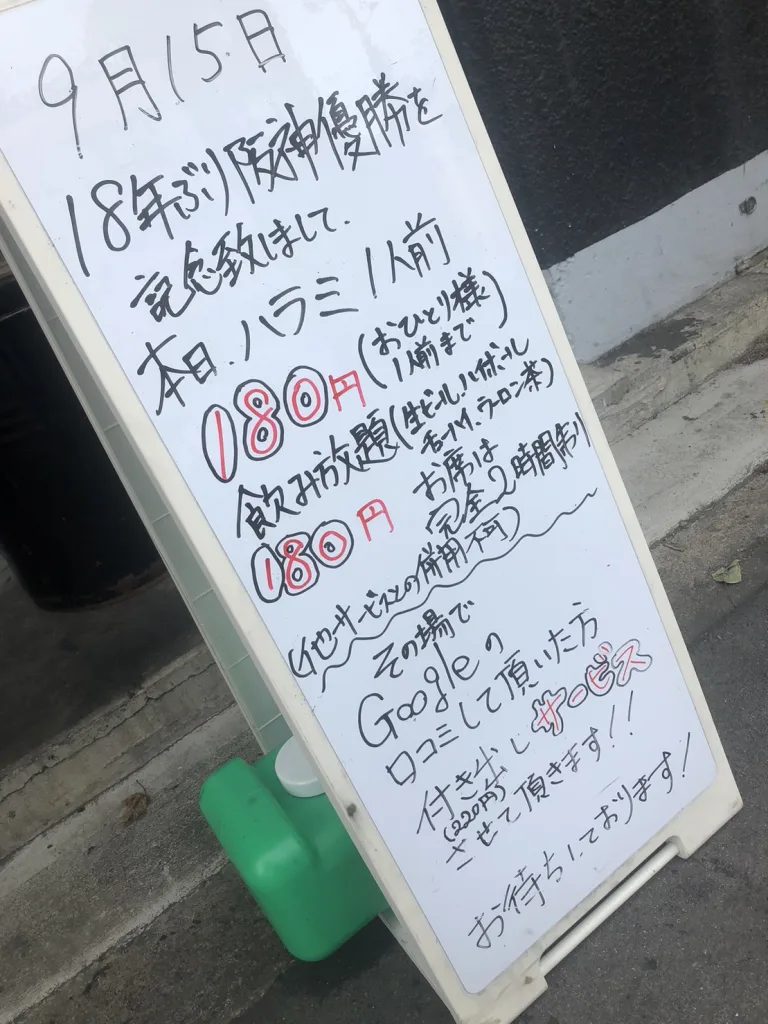 9月15日
18年ぶり阪神優勝を
記念致しまして、
本日、ハラミ1人前
180円(おひとり様
1人前まで)
飲み放題(生ビール、ハイボール
チューハイ、ウーロン茶)
180円 お席は
完全2時間制
(他サービスとの併用不可)
その場で
Googleの
口コミして頂いた方
付き出しサービス
(220円)
させて頂きます!!
お待ちしております!